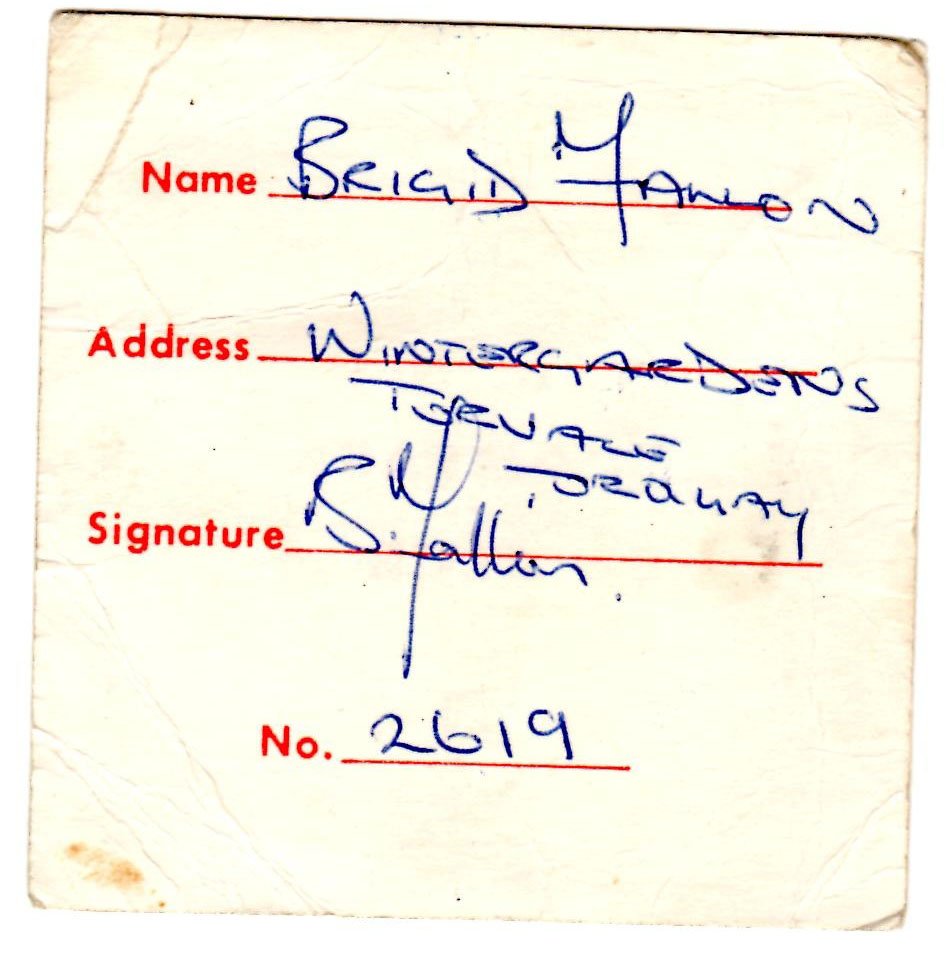 Name BRIGID FALLON
Address WINTERGARDENS
TORVALE
TORQUAY
Signature B. Fallon.
No. 2619